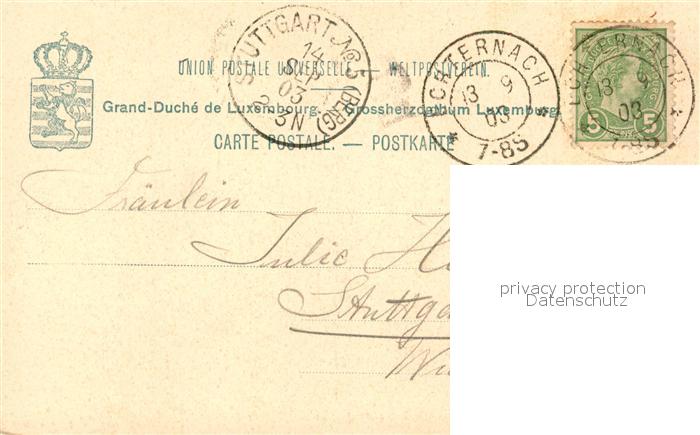 UNION POSTALE UNIVERSELLE. — WELTPOSTVEREIN.
Grand-Duché de Luxembourg. — Grossherzogthum Luxemburg.
CARTE POSTALE. — POSTKARTE
STUTTGART No. 5 (BERG)
14 SEP 03
2-3N.
ECHTERNACH
13 9
03
7-8S
ECHTERNACH
13 9
03
7-8S
5 5
Fräulein
Julie
Stuttga
privacy protection
Datenschutz